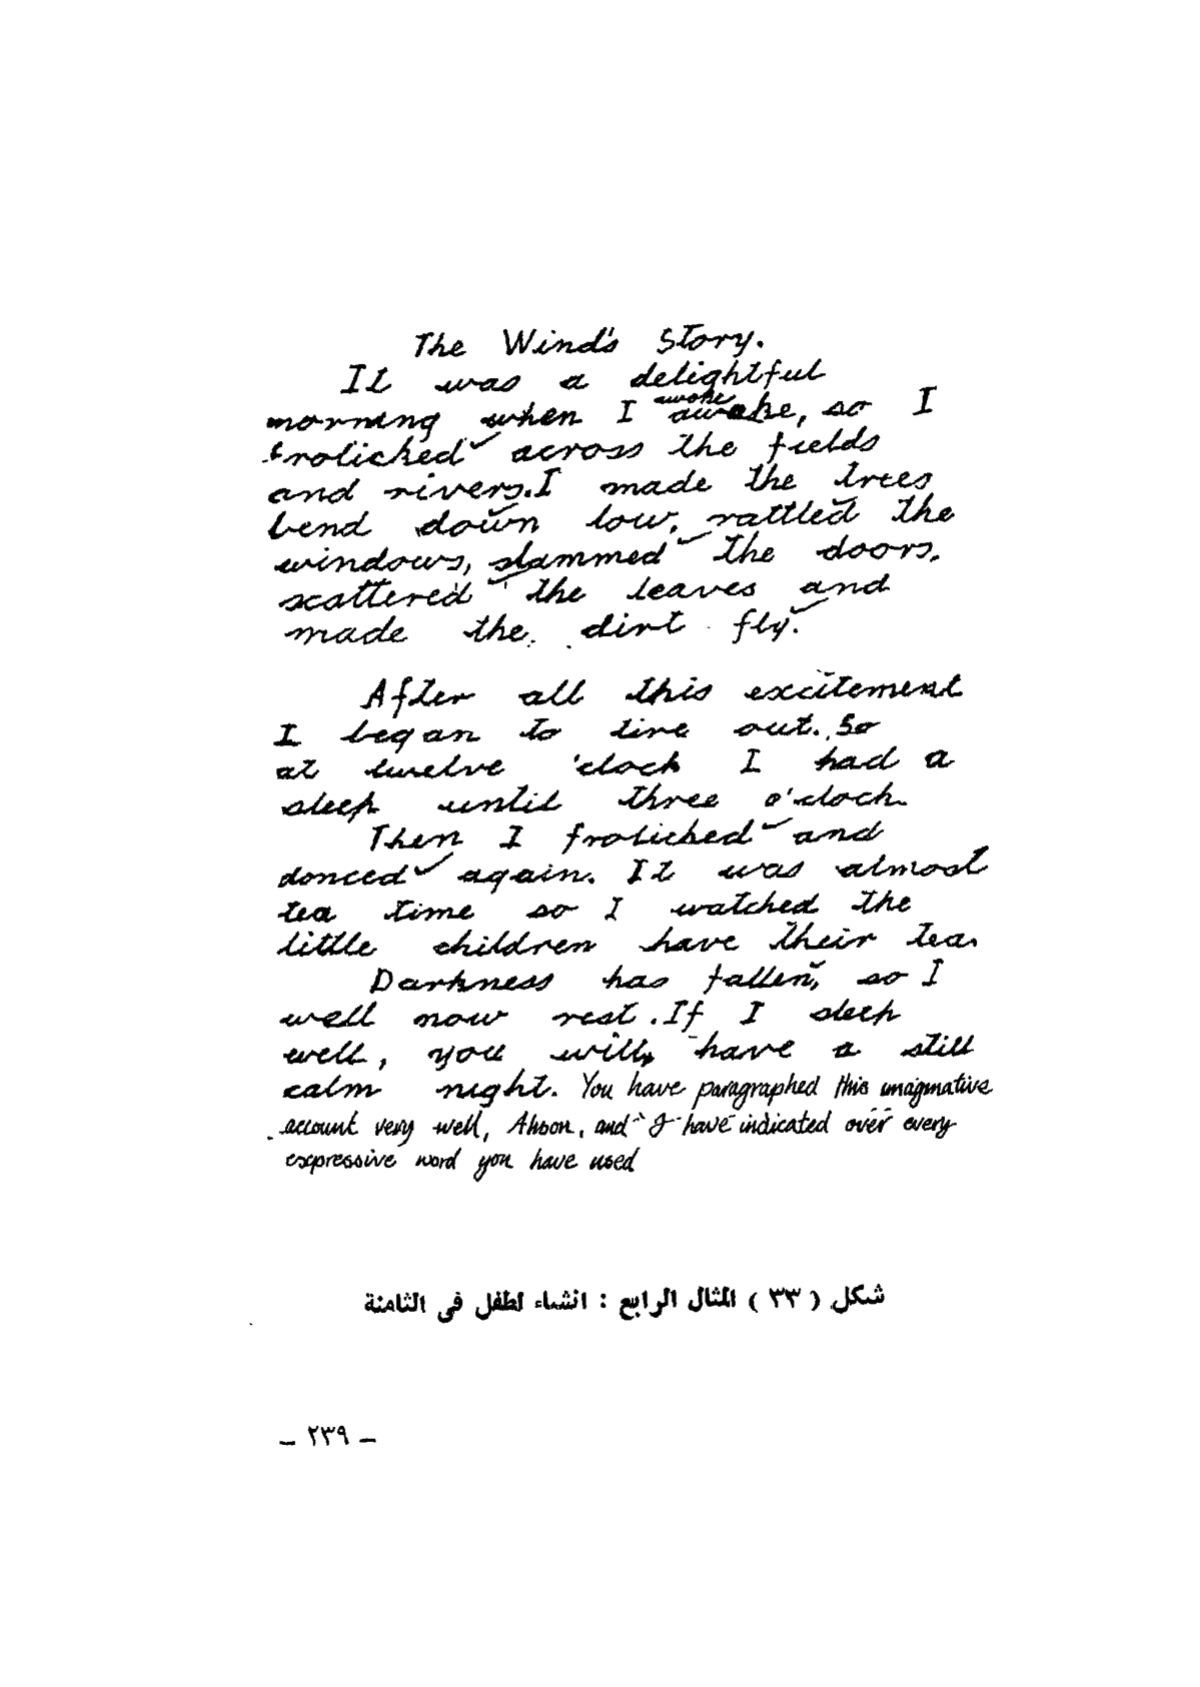 The Wind's Story.
It was a delightful
awoke
morning when I awake, so I
frolicked across the fields
and rivers. I made the trees
bend down low, rattled the
windows, slammed the doors,
scattered the leaves and
made the dirt fly.
After all this excitement
I began to tire out. So
at twelve 'clock I had a
sleep until three o'clock.
Then I frolicked and
donced again. It was almost
tea time so I watched the
little children have their tea.
Darkness has fallen, so I
well now rest. If I sleep
well, you will have a still
calm night. You have paragraphed this imaginative
account very well, and I have indicated over every
expressive word you have used
شكل ( ٣٣ ) المثال الرابع : انشاء لطفل فى الثامنة
– ٢٣٩ –